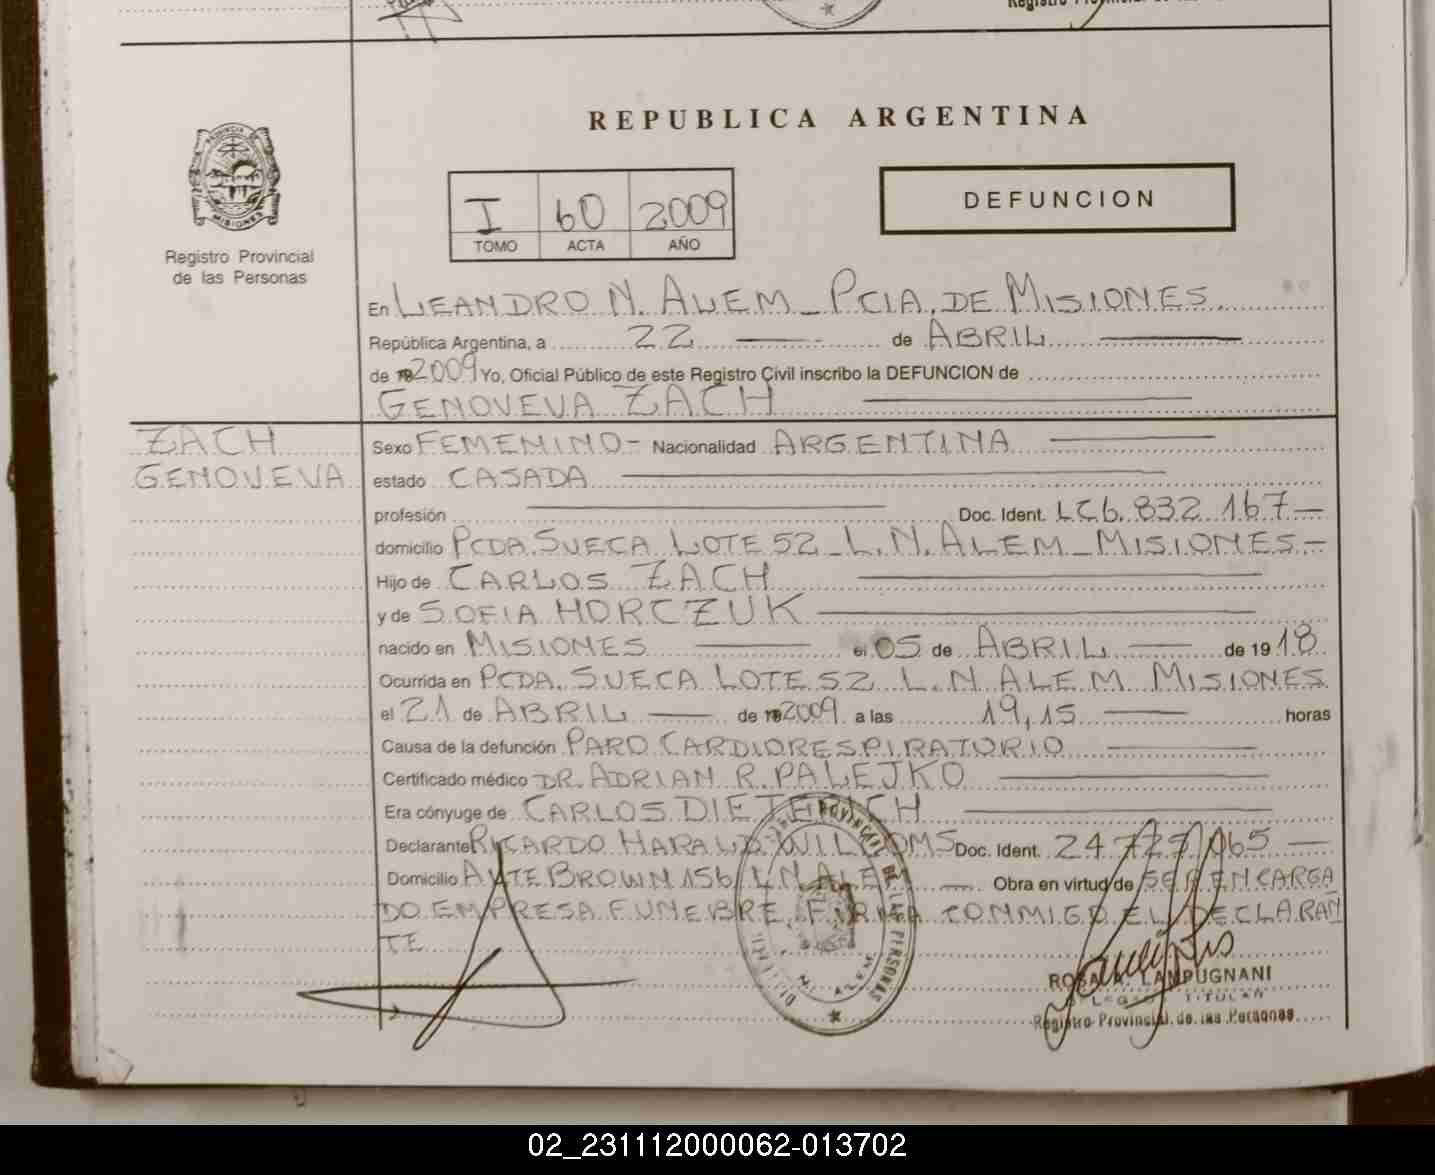 Registro Provincial de las
REPUBLICA ARGENTINA
PROVINCIA DE
MISIONES
Registro Provincial
de las Personas
I 60 2009
TOMO ACTA AÑO
DEFUNCION
En LEANDRO N. ALEM - PCIA. DE MISIONES
República Argentina, a 22 de ABRIL
de 2009 Yo, Oficial Público de este Registro Civil inscribo la DEFUNCION de
GENOVEVA ZACH
ZACH
GENOVEVA
Sexo FEMENINO- Nacionalidad ARGENTINA
estado CASADA
profesión Doc. Ident. LC6.832.167-
domicilio PCDA. SUECA LOTE 52 - L.N. ALEM - MISIONES -
Hijo de CARLOS ZACH
y de SOFIA HORCZUK
nacido en MISIONES el 05 de ABRIL de 1918
Ocurrida en PCDA. SUECA LOTE 52 L.N. ALEM MISIONES
el 21 de ABRIL de 2009 a las 19,15 horas
Causa de la defunción PARO CARDIORESPIRATORIO
Certificado médico DR. ADRIAN R. PALEJKO
Era cónyuge de CARLOS DIETERICH
Declarante RICARDO HARALD Doc. Ident. 24.727.065
Domicilio ALTE BROWN 156 L.N. ALEM Obra en virtud de SER ENCARGA
DO EMPRESA FUNEBRE. FIRMA CONMIGO EL DECLARAN
TE
PROVINCIAL DE LAS PERSONAS
L. N. ALEM
ROSA A. LAMPUGNANI
TITULAR
Registro Provincial de las Personas
02_231112000062-013702